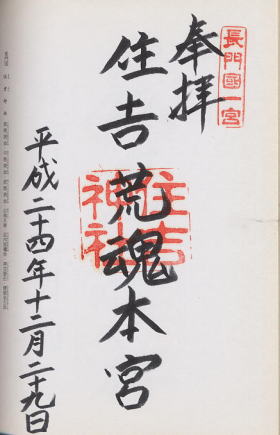 奉拝
長門國一宮
住吉荒魂本宮
住吉神社
平成二十四年十二月二十九日